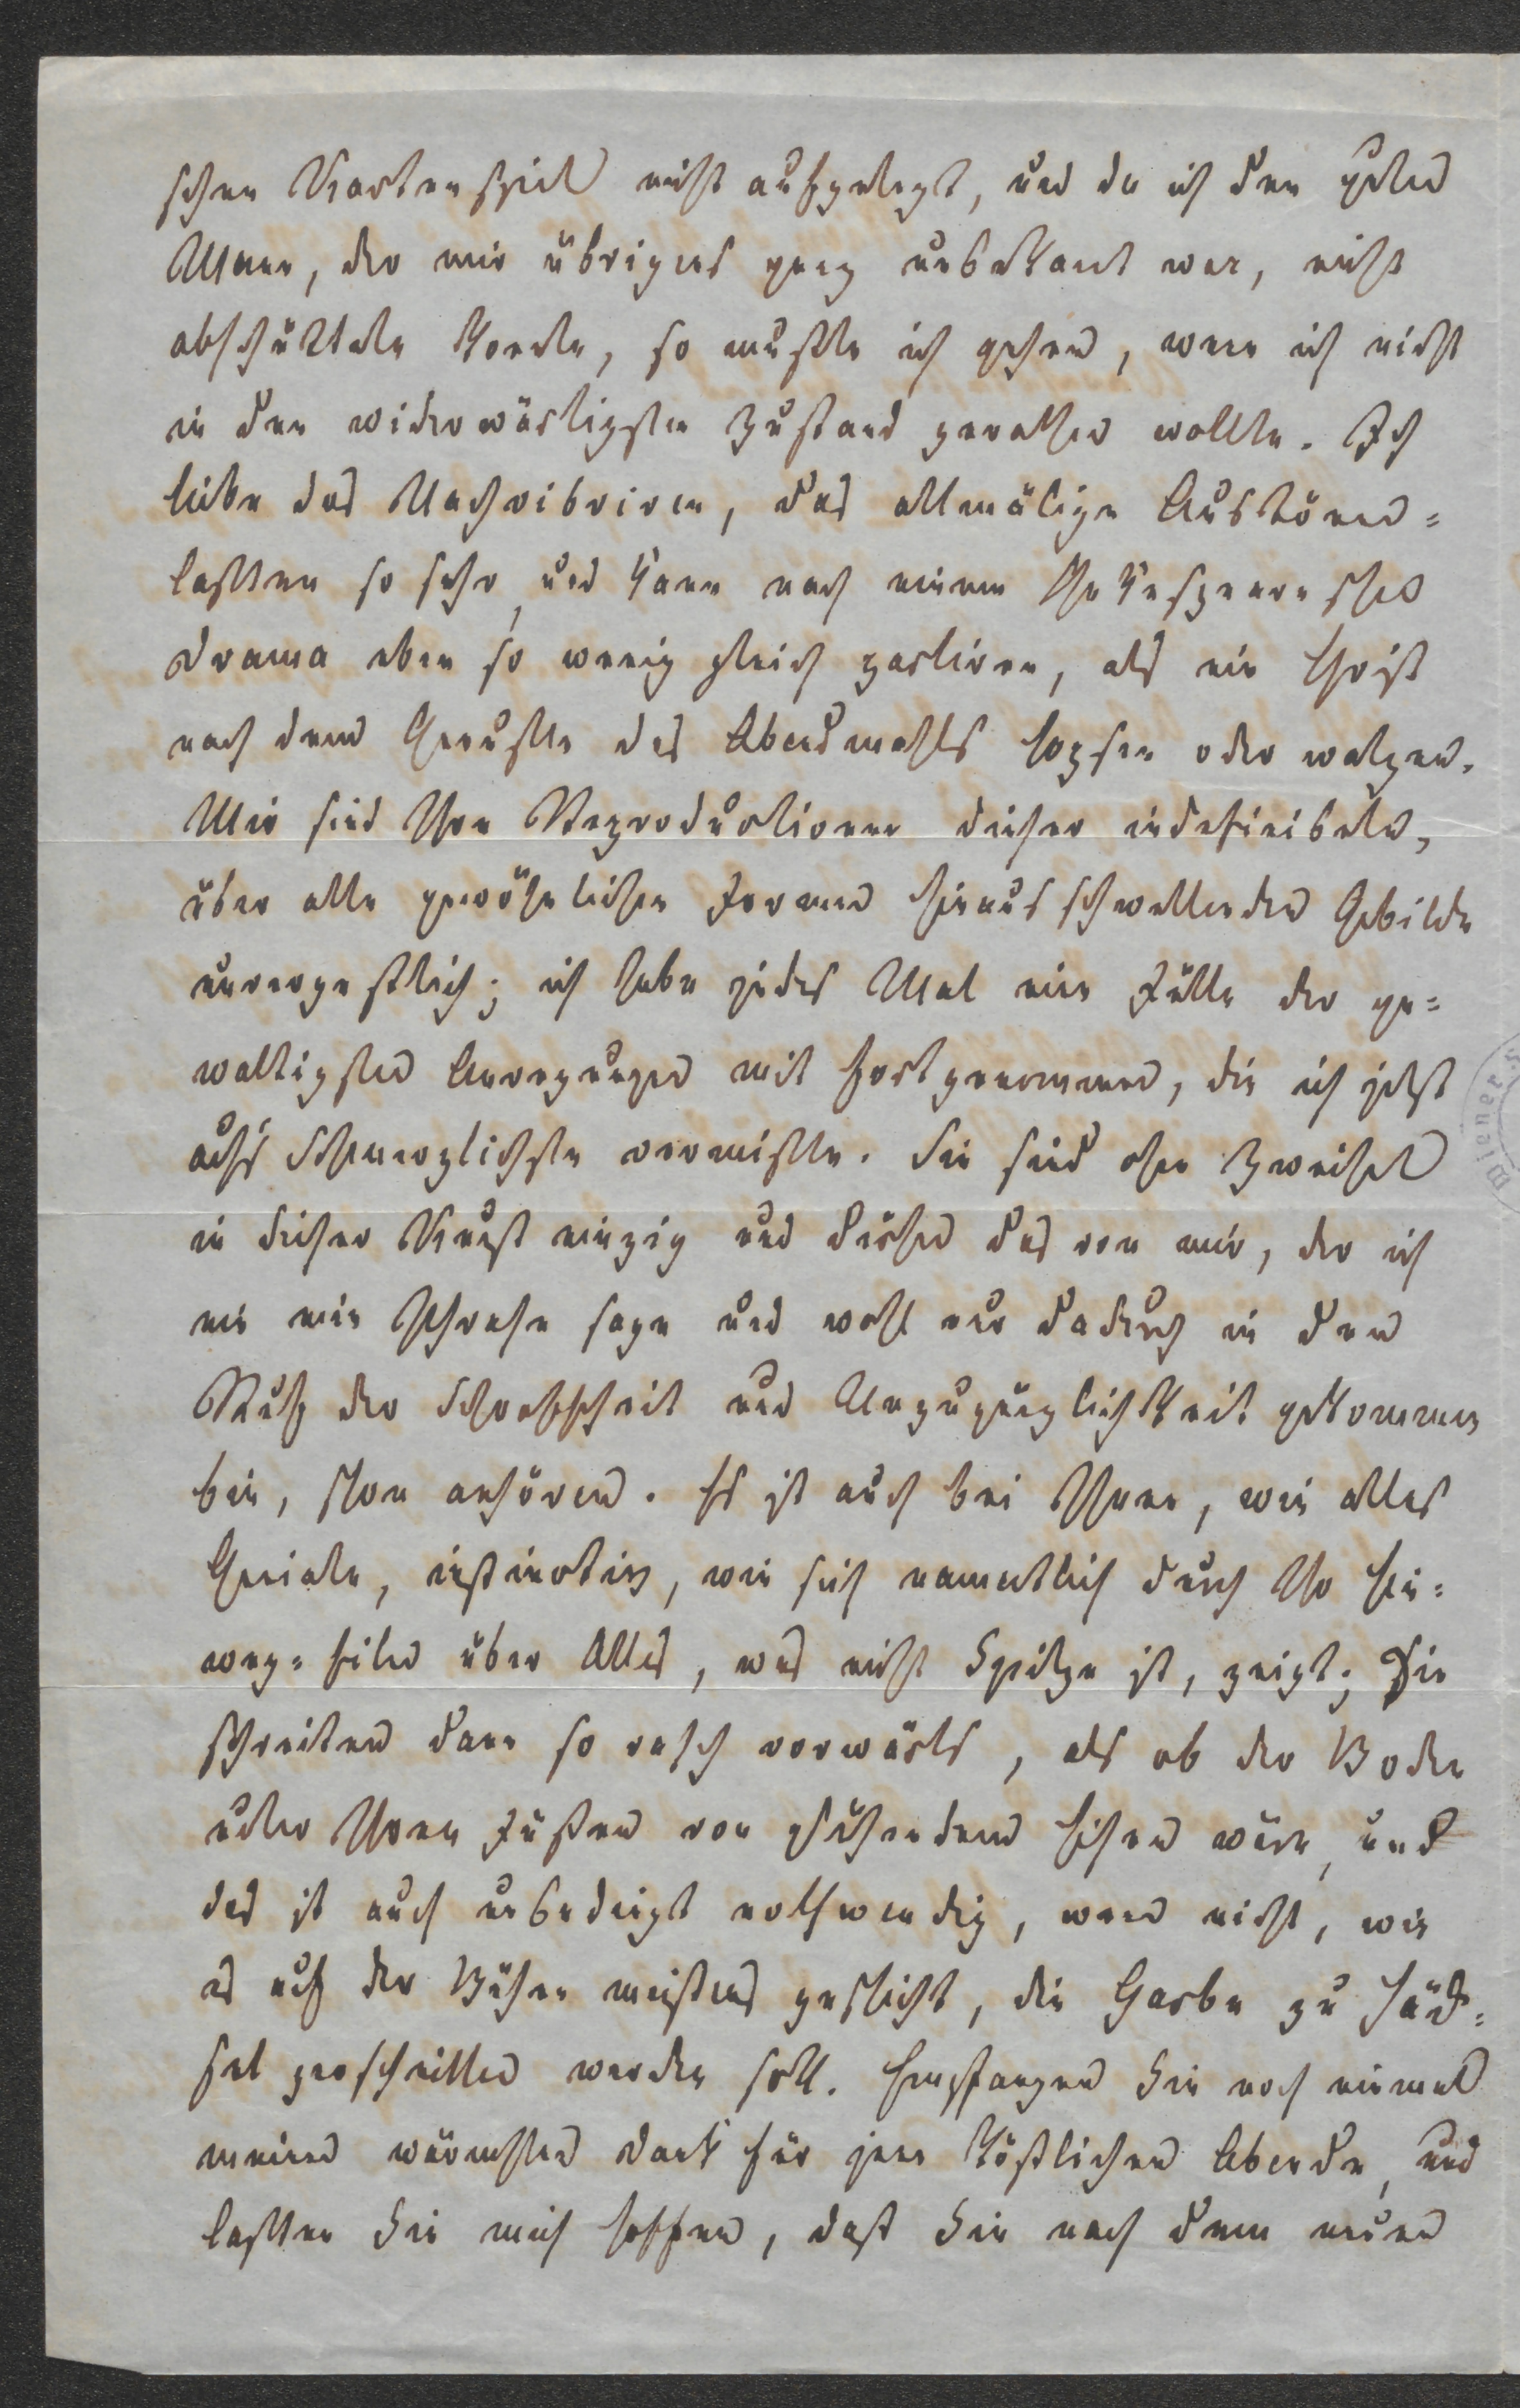 schen Kartenspiel nicht aufgelegt, und da ich den guten
Mann, der mir übrigens ganz unbekannt war, nicht
abschütteln konnte, so mußte ich gehen, wenn ich nicht
in den widerwärtigsten Zustand gerathen wollte. Ich
liebe das Nachvibriren, das allmälige Austönen=
lassen so sehr, und kann nach einem Shakespeareschen
Drama eben so wenig gleich parliren, als ein Christ
nach dem Genusse des Abendmahls hopsen oder walzen.
Mir sind Ihre Reproductionen dieser indefinibeln,
über alle gewöhnlichen Formen hinausschwellenden Gebilde
unvergeßlich; ich habe jedes Mal eine Fülle der ge=
waltigsten Anregungen mit fortgenommen, die ich jetzt
aufs Schmerzlichste vermisse. Sie sind ohne Zweifel
in dieser Kunst einzig und dürfen das von mir, der ich
nie eine Phrase sage und wohl nur dadurch in den
Ruf der Schroffheit und Unzugänglichkeit gekommen
bin, schon anhören. Es ist auch bei Ihnen, wie alles
Geniale, instinctiv, wie sich namentlich durch Ihr Hin=
weg=eilen über Alles, was nicht Spitze ist, zeigt; Sie
schreiten dann so rasch vorwärts, als ob der Boden
unter Ihren Füßen von glühendem Eisen wäre, und
das ist auch unbedingt nothwendig, wenn nicht, wie
es auf der Bühne meistens geschieht, die Garbe zu Häck=
sel zerschnitten werden soll. Empfangen Sie noch einmal
meinen wärmsten Dank für jene köstlichen Abende, und
lassen Sie mich hoffen, daß Sie nach dem neuen
Wiener